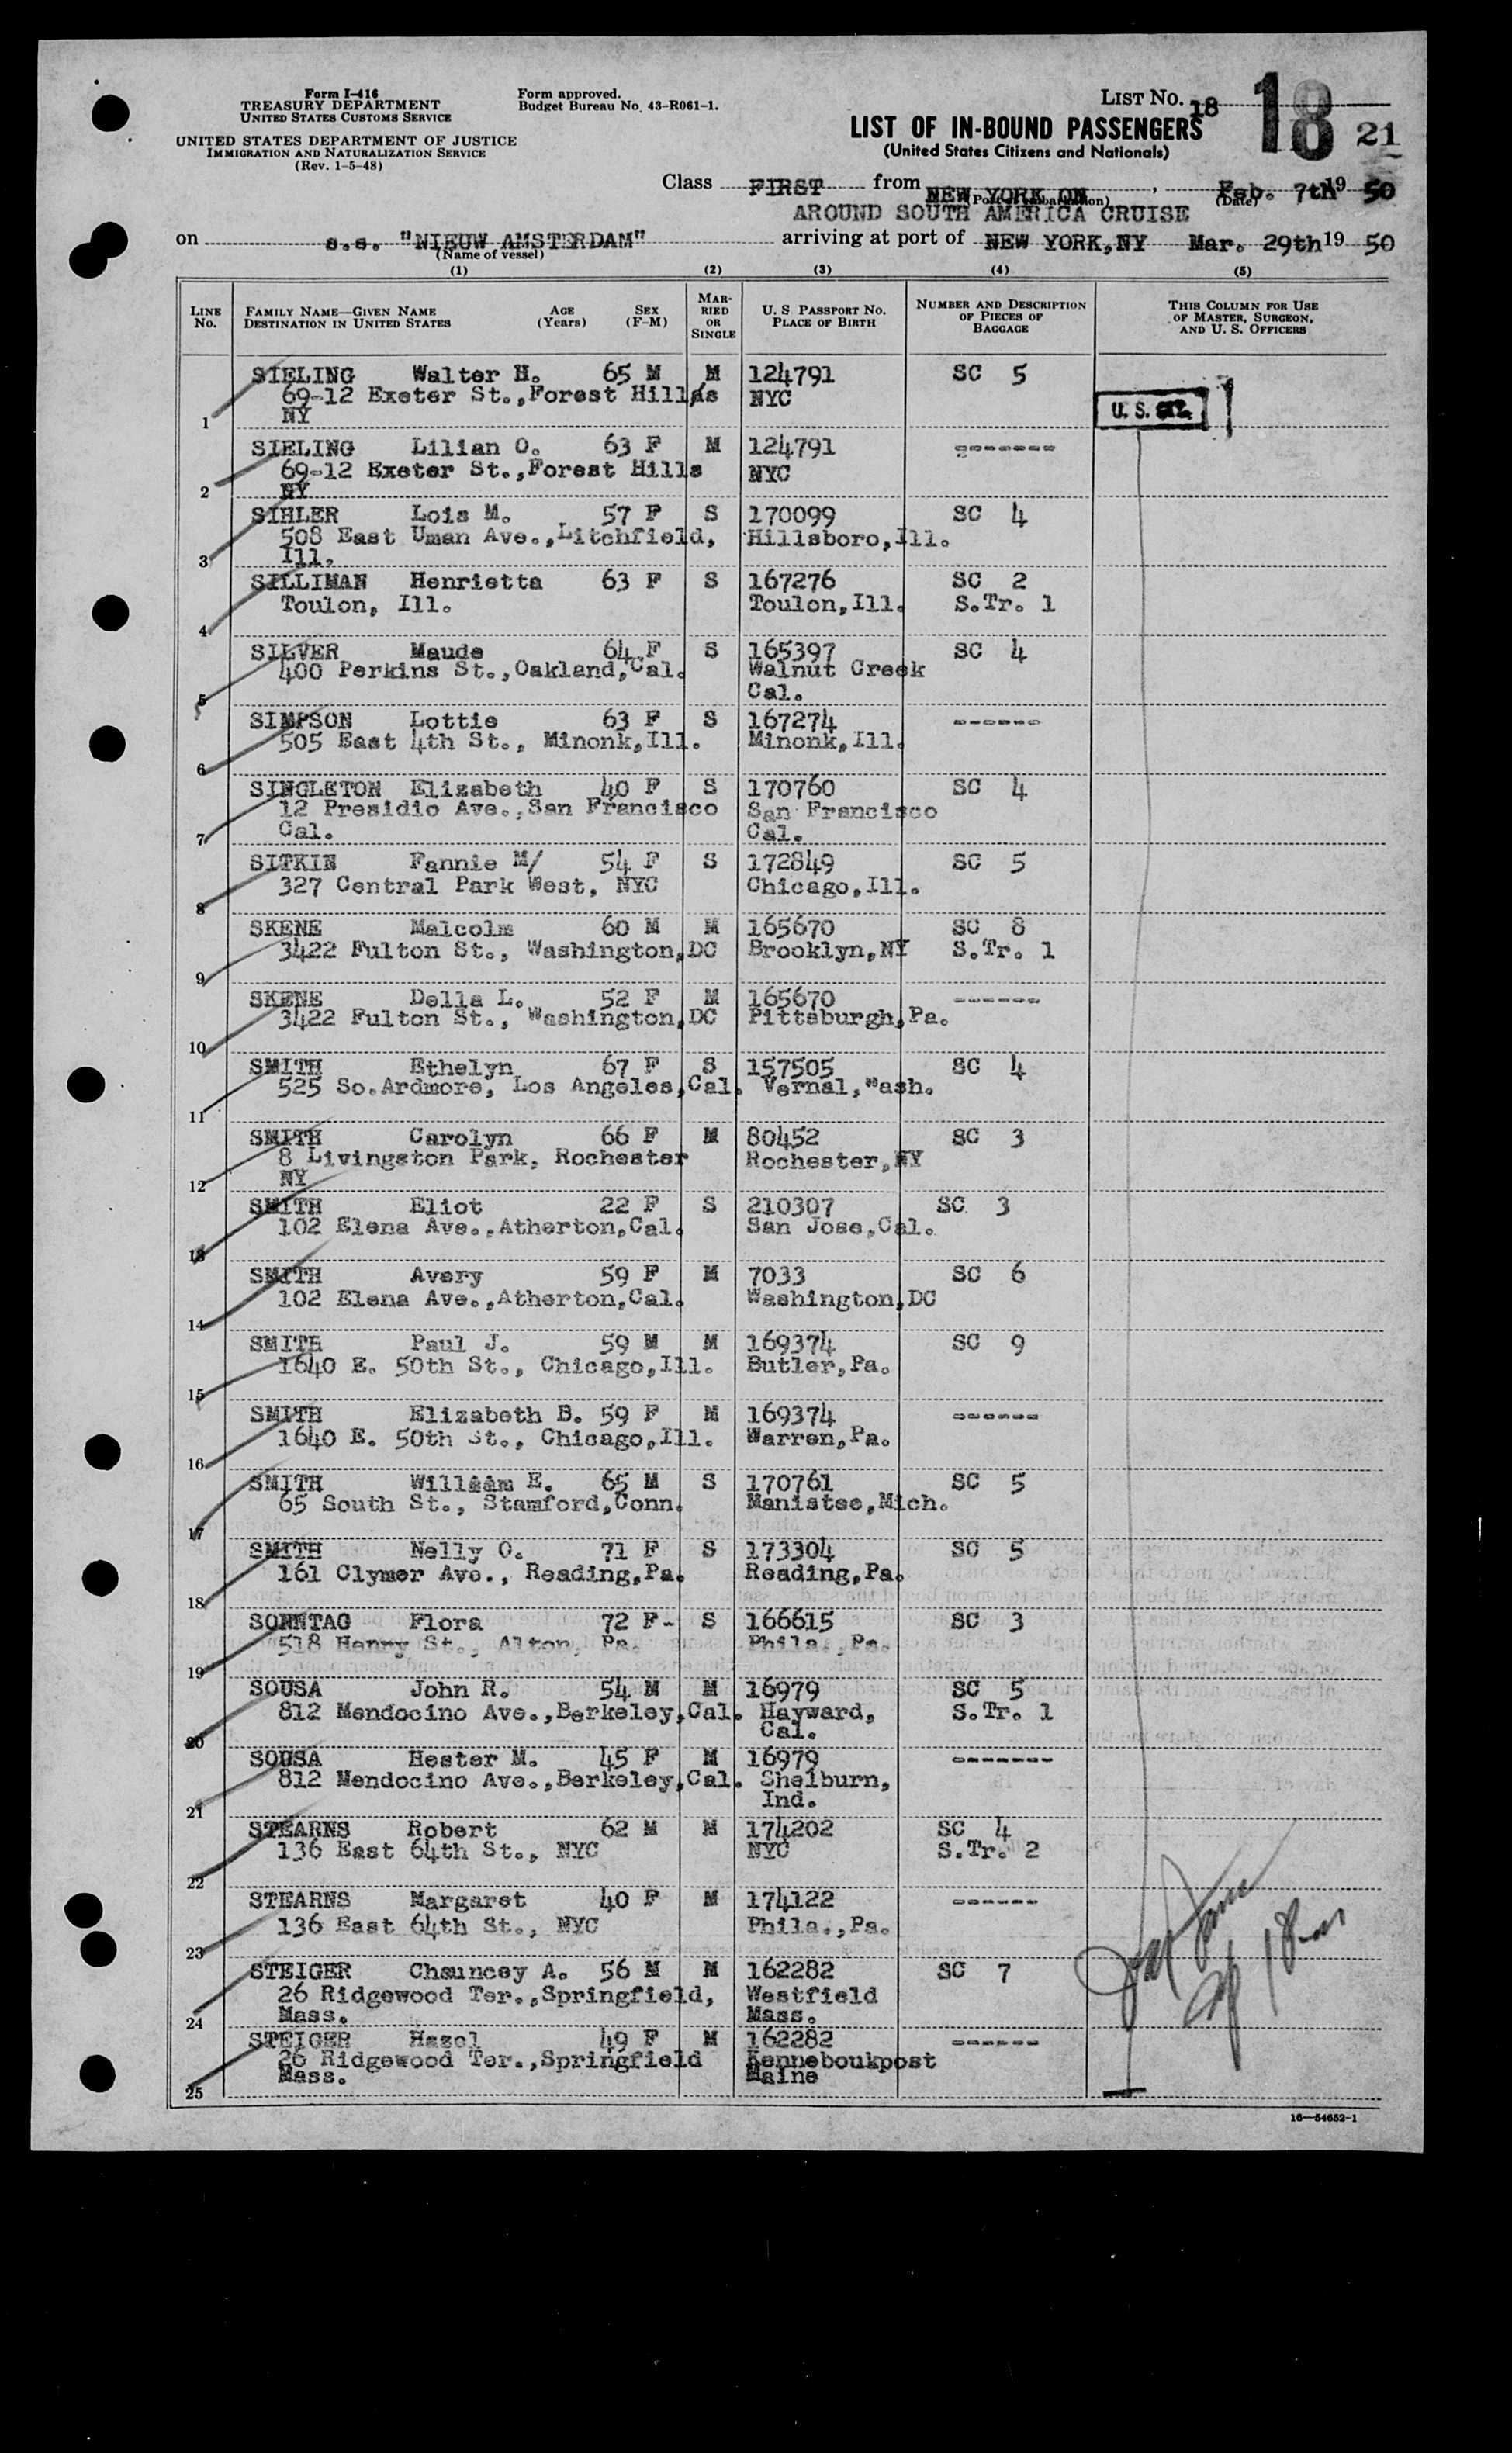 Form I-416
TREASURY DEPARTMENT
UNITED STATES CUSTOMS SERVICE
UNITED STATES DEPARTMENT OF JUSTICE
IMMIGRATION AND NATURALIZATION SERVICE
(Rev. 1-5-48)
Form approved.
Budget Bureau No. 43-R061-1.
LIST NO. 18
18
21
LIST OF IN-BOUND PASSENGERS
(United States Citizens and Nationals)
Class FIRST from NEW YORK ON, Feb. 7th 19 50
(Port of embarkation) (Date)
AROUND SOUTH AMERICA CRUISE
on s.s. "NIEUW AMSTERDAM" arriving at port of NEW YORK,NY Mar. 29th 19 50
(Name of vessel)
(1) (2) (3) (4) (5)
LINE No.
FAMILY NAME—GIVEN NAME AGE (Years) SEX (F-M)
DESTINATION IN UNITED STATES
MARRIED OR SINGLE
U. S. PASSPORT NO.
PLACE OF BIRTH
NUMBER AND DESCRIPTION OF PIECES OF BAGGAGE
THIS COLUMN FOR USE OF MASTER, SURGEON, AND U. S. OFFICERS
SIELING Walter H. 65 M M 124791 SC 5
69-12 Exeter St.,Forest Hills NYC
1 NY
U. S. CIT.
SIELING Lilian O. 63 F M 124791 -------
69-12 Exeter St.,Forest Hills NYC
2 NY
SIHLER Lois M. 57 F S 170099 SC 4
508 East Uman Ave.,Litchfield, Hillsboro,Ill.
3 Ill.
SILLIMAN Henrietta 63 F S 167276 SC 2
Toulon, Ill. Toulon,Ill. S.Tr. 1
4
SILVER Maude 64 F S 165397 SC 4
400 Perkins St.,Oakland,Cal. Walnut Creek
5 Cal.
SIMPSON Lottie 63 F S 167274 ------
505 East 4th St., Minonk,Ill. Minonk,Ill.
6
SINGLETON Elizabeth 40 F S 170760 SC 4
12 Presidio Ave.,San Francisco San Francisco
7 Cal. Cal.
SITKIN Fannie M/ 54 F S 172849 SC 5
327 Central Park West, NYC Chicago,Ill.
8
SKENE Malcolm 60 M M 165670 SC 8
3422 Fulton St., Washington,DC Brooklyn,NY S.Tr. 1
9
SKENE Della L. 52 F M 165670 ------
3422 Fulton St., Washington,DC Pittsburgh,Pa.
10
SMITH Ethelyn 67 F S 157505 SC 4
525 So.Ardmore, Los Angeles,Cal. Vernal,Wash.
11
SMITH Carolyn 66 F M 80452 SC 3
8 Livingston Park, Rochester Rochester,NY
12 NY
SMITH Eliot 22 F S 210307 SC 3
102 Elena Ave.,Atherton,Cal. San Jose,Cal.
13
SMITH Avery 59 F M 7033 SC 6
102 Elena Ave.,Atherton,Cal. Washington,DC
14
SMITH Paul J. 59 M M 169374 SC 9
1640 E. 50th St., Chicago,Ill. Butler,Pa.
15
SMITH Elizabeth B. 59 F M 169374 ------
1640 E. 50th St., Chicago,Ill. Warren,Pa.
16
SMITH William E. 65 M S 170761 SC 5
65 South St., Stamford,Conn. Manistee,Mich.
17
SMITH Nelly O. 71 F S 173304 SC 5
161 Clymer Ave., Reading,Pa. Reading,Pa.
18
SONNTAG Flora 72 F- S 166615 SC 3
518 Henry St., Alton, Pa. Phila., Pa.
19
SOUSA John R. 54 M M 16979 SC 5
812 Mendocino Ave.,Berkeley,Cal. Hayward, S.Tr. 1
20 Cal.
SOUSA Hester M. 45 F M 16979 -------
812 Mendocino Ave.,Berkeley,Cal. Shelburn,
21 Ind.
STEARNS Robert 62 M M 174202 SC 4
136 East 64th St., NYC NYC S.Tr. 2
22
STEARNS Margaret 40 F M 174122 ------
136 East 64th St., NYC Phila.,Pa.
23
STEIGER Chauncey A. 56 M M 162282 SC 7
26 Ridgewood Ter.,Springfield, Westfield
24 Mass. Mass.
STEIGER Hazel 49 F M 162282 ------
26 Ridgewood Ter.,Springfield Kenneboukpost
25 Mass. Maine
16—54652-1